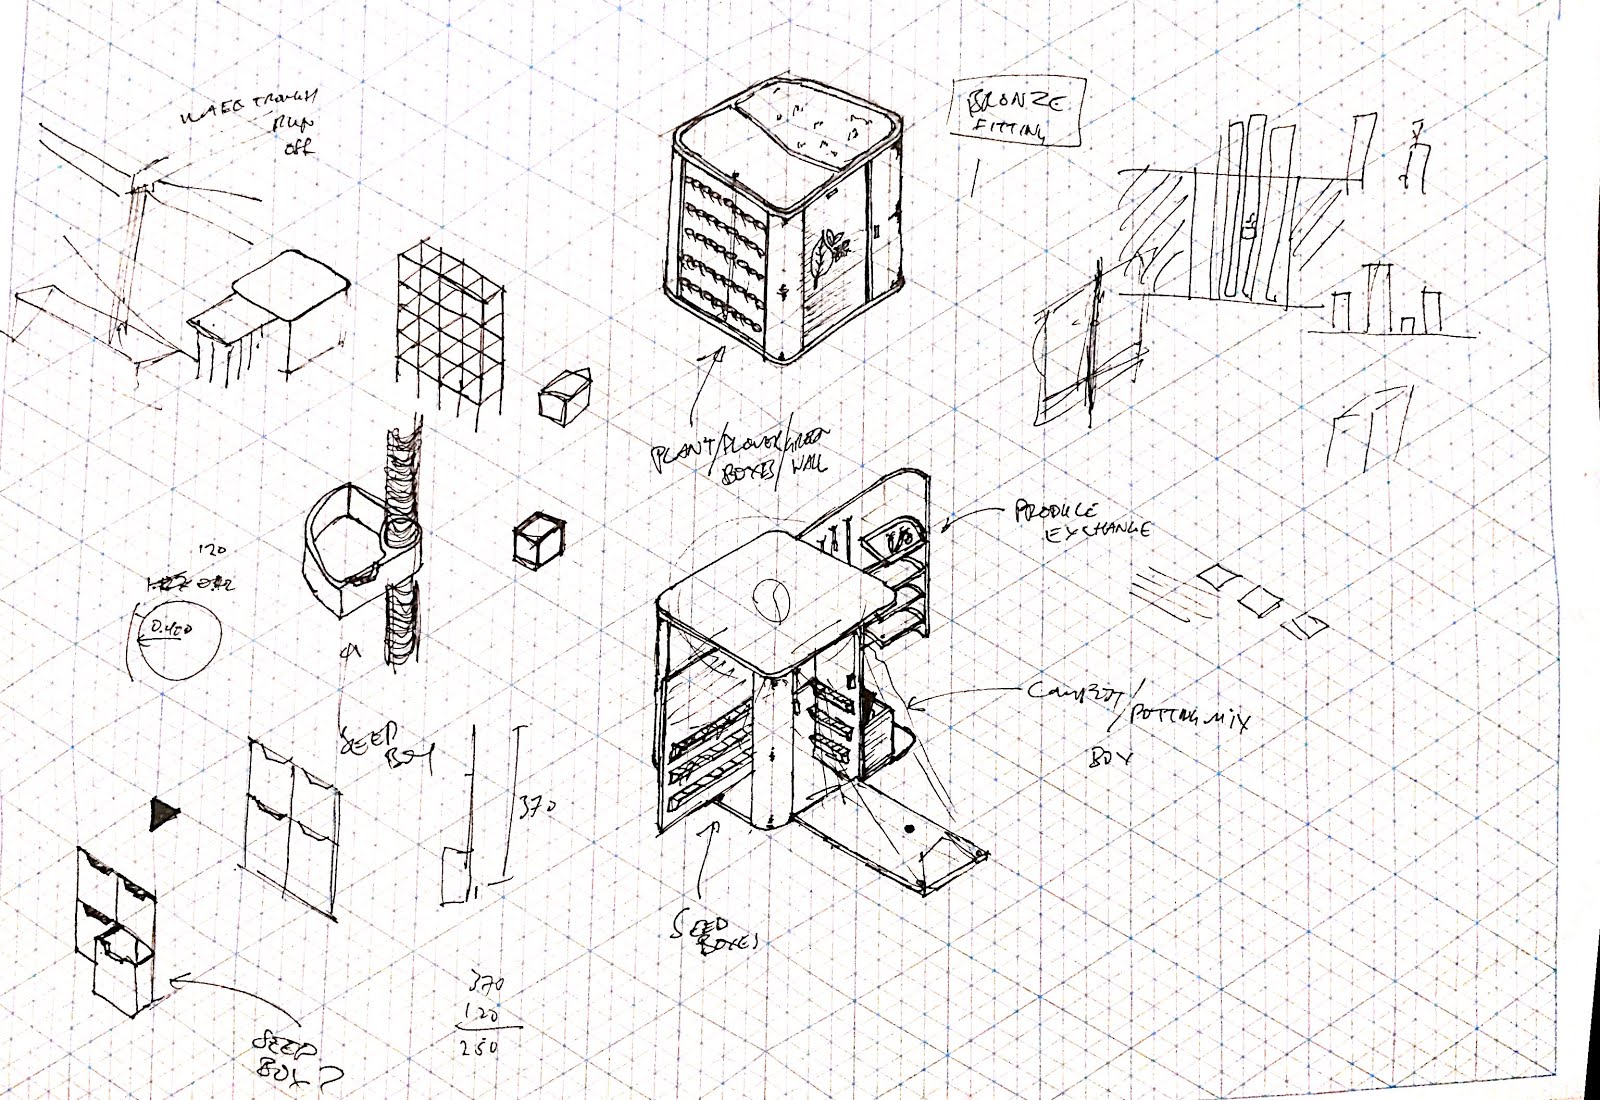 TROUGH
RUN
OFF
BRONZE
FITTING
PLANT/FLOWER/GREEN
BOXES/WALL
PRODUCE
EXCHANGE
120
0.400
SEED
BOX
370
COMPOST/
POTTING MIX
BOX
SEED
BOXES
370
120
250
SEED
BOX?